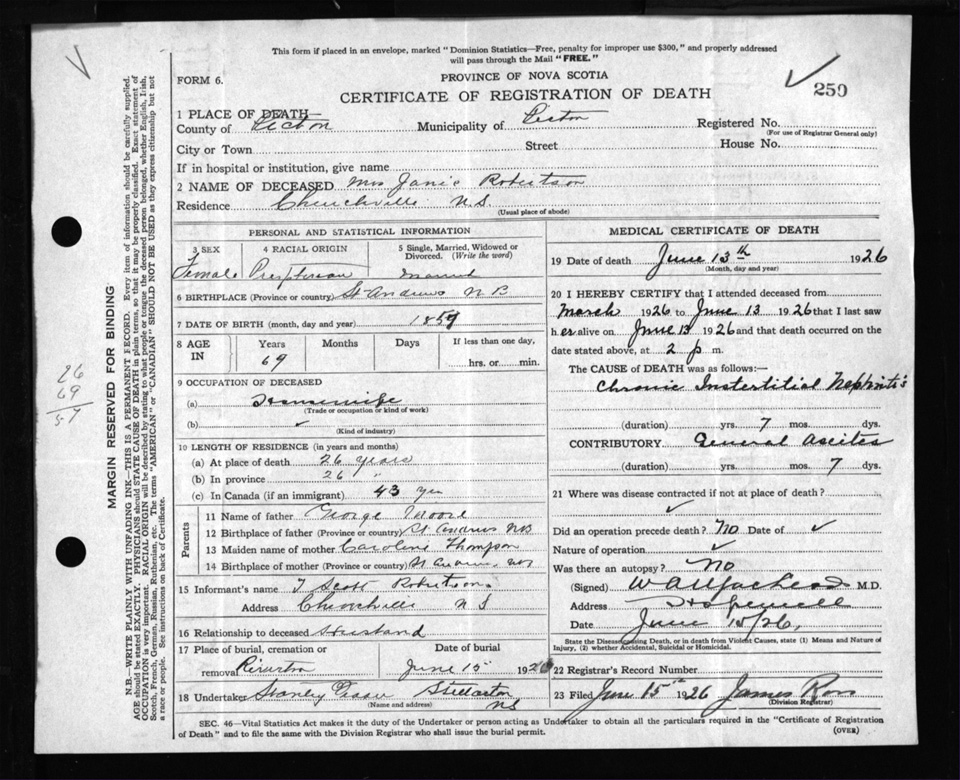 This form if placed in an envelope, marked "Dominion Statistics—Free, penalty for improper use $300," and properly addressed
will pass through the Mail "FREE."
FORM 6.
PROVINCE OF NOVA SCOTIA
CERTIFICATE OF REGISTRATION OF DEATH
250
1 PLACE OF DEATH—
County of Pictou Municipality of Pictou Registered No.
(For use of Registrar General only)
City or Town Street House No.
If in hospital or institution, give name
2 NAME OF DECEASED Mrs Janie Robertson
Residence Churchville N.S.
(Usual place of abode)
PERSONAL AND STATISTICAL INFORMATION
3 SEX 4 RACIAL ORIGIN 5 Single, Married, Widowed or
Divorced. (Write the word)
Female Married
6 BIRTHPLACE (Province or country) St Andrews N B
7 DATE OF BIRTH (month, day and year)
8 AGE IN Years Months Days If less than one day,
69 hrs. or min.
9 OCCUPATION OF DECEASED
(a) Housewife
(Trade or occupation or kind of work)
(b) ✓
(Kind of industry)
10 LENGTH OF RESIDENCE (in years and months)
(a) At place of death 26 years
(b) In province 26 "
(c) In Canada (if an immigrant) 43 yrs
Parents
11 Name of father George Moore
12 Birthplace of father (Province or country) St Andrews NB
13 Maiden name of mother Caroline Thompson
14 Birthplace of mother (Province or country) St Andrews NB
15 Informant's name Scott Robertson
Address Churchville N S
16 Relationship to deceased Husband
17 Place of burial, cremation or Date of burial
removal Riverton June 15 1926
18 Undertaker Stanley Stellarton
NS
(Name and address)
MEDICAL CERTIFICATE OF DEATH
19 Date of death June 13th 1926
(Month, day and year)
20 I HEREBY CERTIFY that I attended deceased from
March 1926 to June 13 1926 that I last saw
her alive on June 13 1926 and that death occurred on the
date stated above, at 2 p m.
The CAUSE OF DEATH was as follows:—
Chronic Instertitial Nephritis
(duration) yrs. 7 mos. dys.
CONTRIBUTORY General Ascites
(duration) yrs. mos. 7 dys.
21 Where was disease contracted if not at place of death?
✓
Did an operation precede death? No Date of ✓
Nature of operation ✓
Was there an autopsy? No
(Signed) M.D.
Address Hopewell
Date June 15/26
State the Disease causing Death, or in death from Violent Causes, state (1) Means and Nature of
Injury, (2) whether Accidental, Suicidal or Homicidal.
22 Registrar's Record Number
23 Filed June 15th 1926 James Ross
(Division Registrar)
SEC. 46—Vital Statistics Act makes it the duty of the Undertaker or person acting as Undertaker to obtain all the particulars required in the "Certificate of Registration
of Death" and to file the same with the Division Registrar who shall issue the burial permit.
(OVER)
MARGIN RESERVED FOR BINDING
N.B.—WRITE PLAINLY WITH UNFADING INK—THIS IS A PERMANENT RECORD. Every item of information should be carefully supplied.
AGE should be stated EXACTLY. PHYSICIANS should STATE CAUSE OF DEATH in plain terms, so that it may be properly classified. Exact statement of
OCCUPATION is very important. RACIAL ORIGIN will be described by stating to what people or tongue the deceased person belonged, whether English, Irish,
Scotch, French, German, Russian, Ruthenian, etc. The terms "AMERICAN" or "CANADIAN" SHOULD NOT BE USED as they express citizenship but not
a race or people. See instructions on back of Certificate.
26
69
57